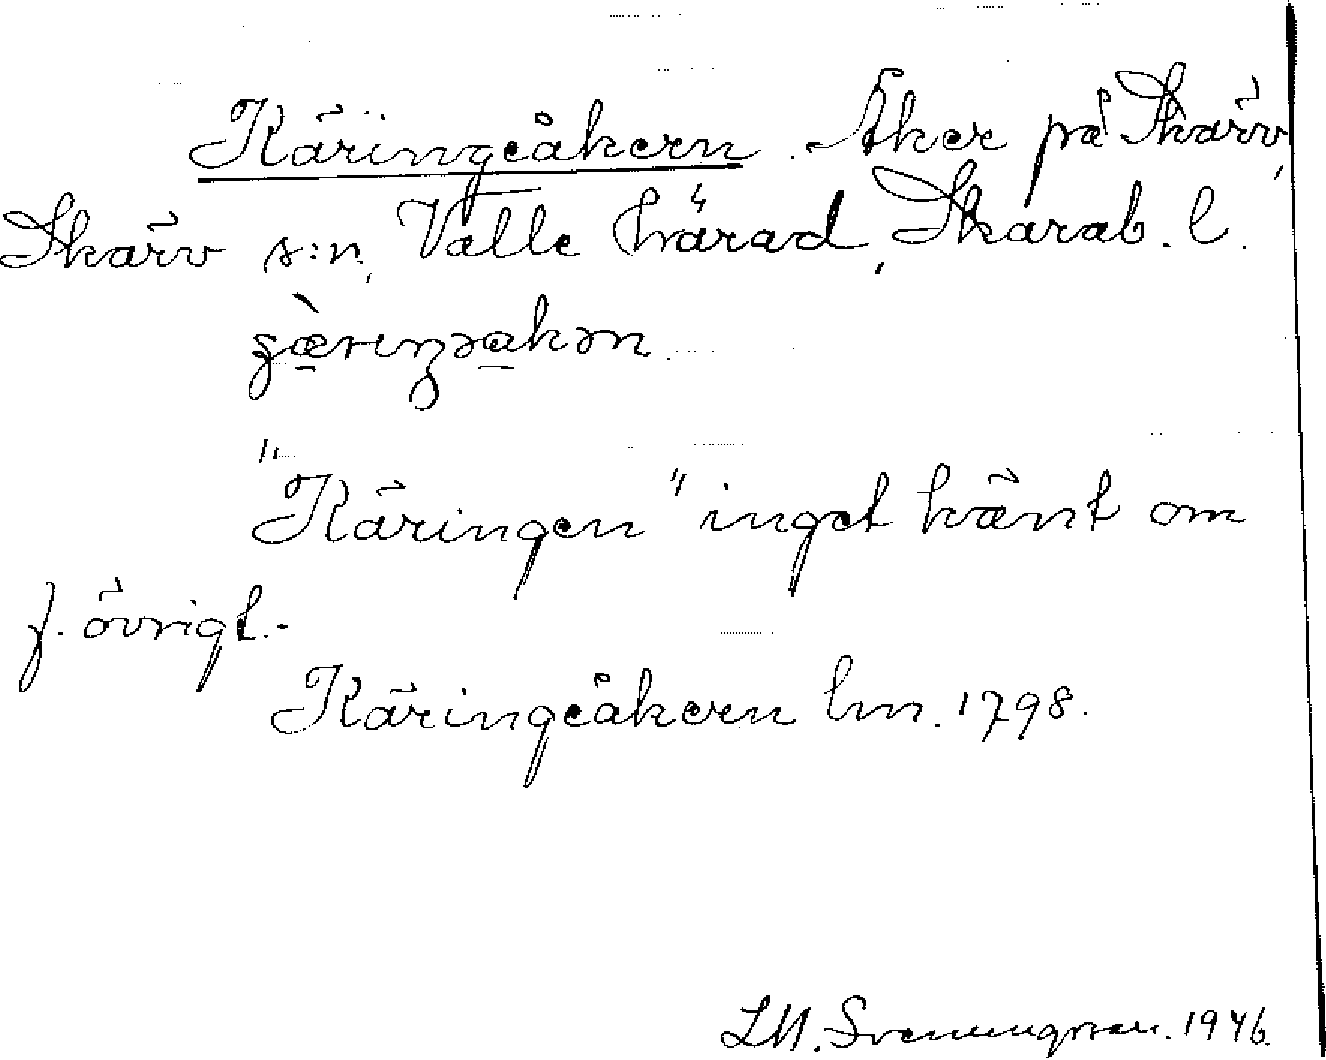 Käringeåkern. Åker på Skärv,
Skärv s:n, Valle härad, Skarab. l.
"Käringen" inget känt om
f. övrigt.-
Käringeåkern lm. 1798.
S. Svenungsson. 1946.